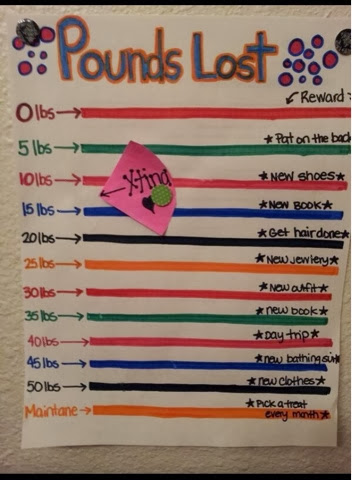 Pounds Lost
Reward
0 lbs
5 lbs ★Pat on the back
X-tina
10 lbs ★New shoes★
15 lbs ★New Book★
20 lbs ★Get hair done★
25 lbs ★New jewlery★
30 lbs ★New outfit★
35 lbs ★new book★
40 lbs ★Day trip★
45 lbs ★new bathing suit★
50 lbs ★new clothes★
Maintane ★Pick a treat
every month★